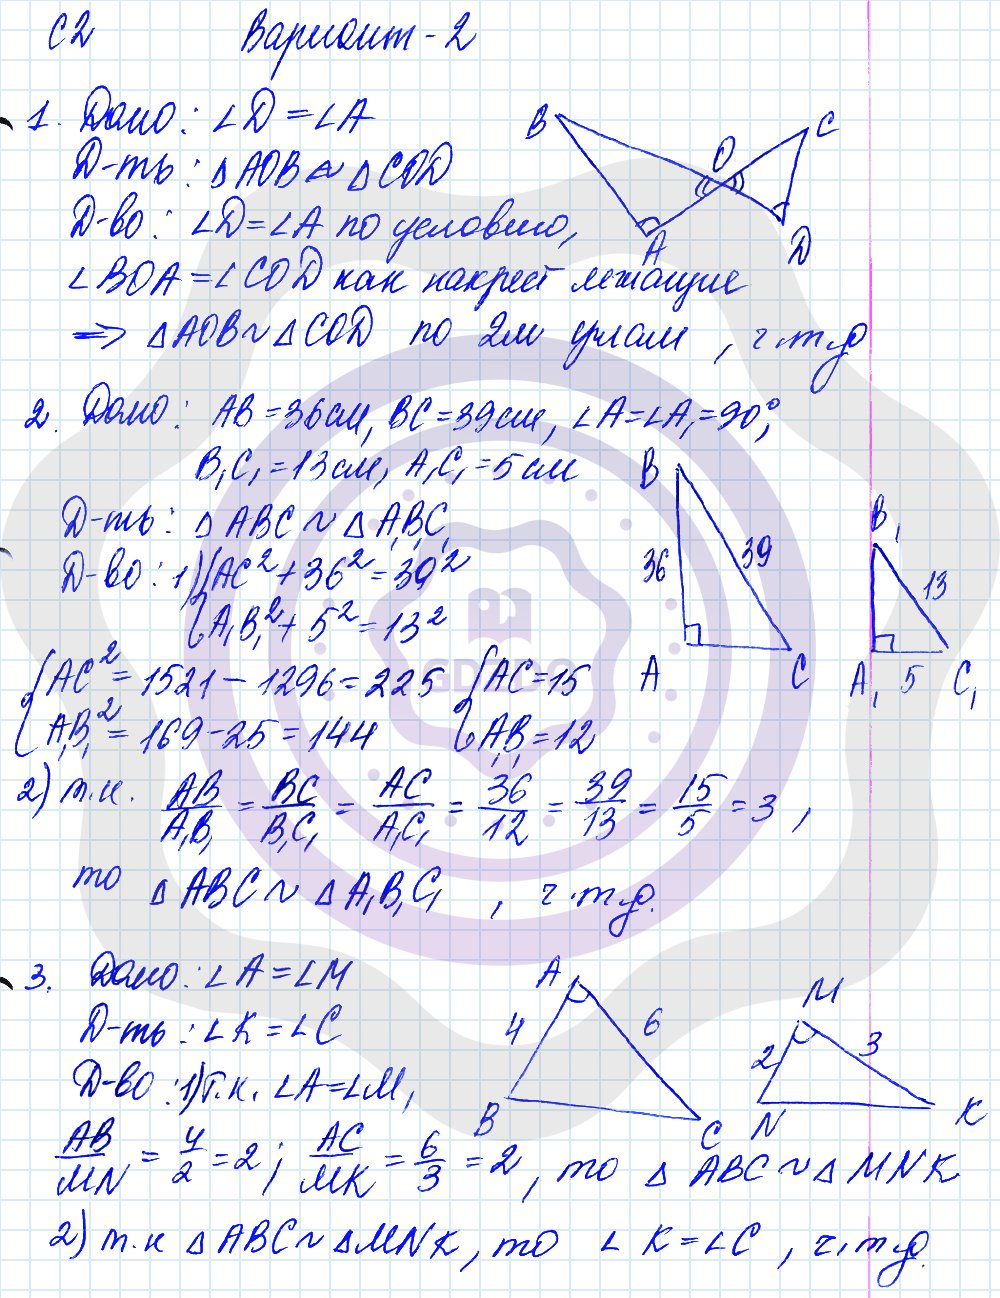 С2 Вариант - 2
1. Дано: ∠D = ∠A
Д-ть: △AOB ~ △COD
Д-во: ∠D = ∠A по условию,
∠BOA = ∠COD как накрест лежащие
⟹ △AOB ~ △COD по 2м углам, ч.т.д
B C O A D
2. Дано: AB = 36 см, BC = 39 см, ∠A = ∠A₁ = 90°,
B₁C₁ = 13 см, A₁C₁ = 5 см
Д-ть: △ABC ~ △A₁B₁C₁
Д-во: 1) { AC² + 36² = 39²
A₁B₁² + 5² = 13²
{ AC² = 1521 - 1296 = 225 { AC = 15
A₁B₁² = 169 - 25 = 144 A₁B₁ = 12
B 36 39 A C
B₁ 13 A₁ 5 C₁
2) т.к. AB/A₁B₁ = BC/B₁C₁ = AC/A₁C₁ = 36/12 = 39/13 = 15/5 = 3,
то △ABC ~ △A₁B₁C₁, ч.т.д.
3. Дано: ∠A = ∠M
Д-ть: ∠K = ∠C
Д-во: 1) т.к. ∠A = ∠M,
A 4 6 B C
M 2 3 N K
AB/MN = 4/2 = 2; AC/MK = 6/3 = 2, то △ABC ~ △MNK
2) т.к △ABC ~ △MNK, то ∠K = ∠C, ч.т.д.